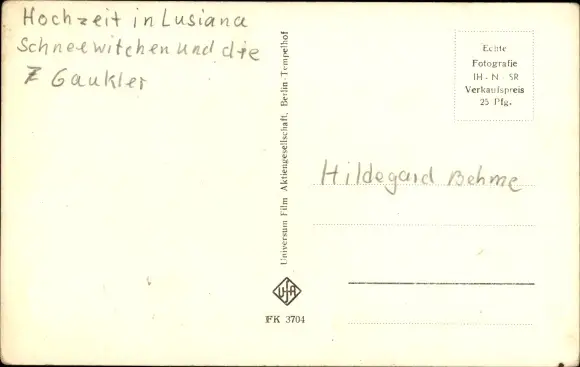 Hochzeit in Lusiana
Schneewitchen und die
7 Gaukler
Universum Film Aktiengesellschaft, Berlin-Tempelhof
UFA
FK 3704
Echte
Fotografie
IH - N - SR
Verkaufspreis
25 Pfg.
Hildegard Behme